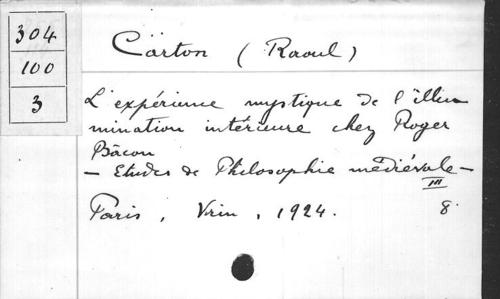 304
100
3
Carton (Raoul)
L'expérience mystique de l'illu
mination intérieure chez Roger
Bacon
— Etudes de Philosophie médiévale —
III
Paris, Vrin, 1924. 8°